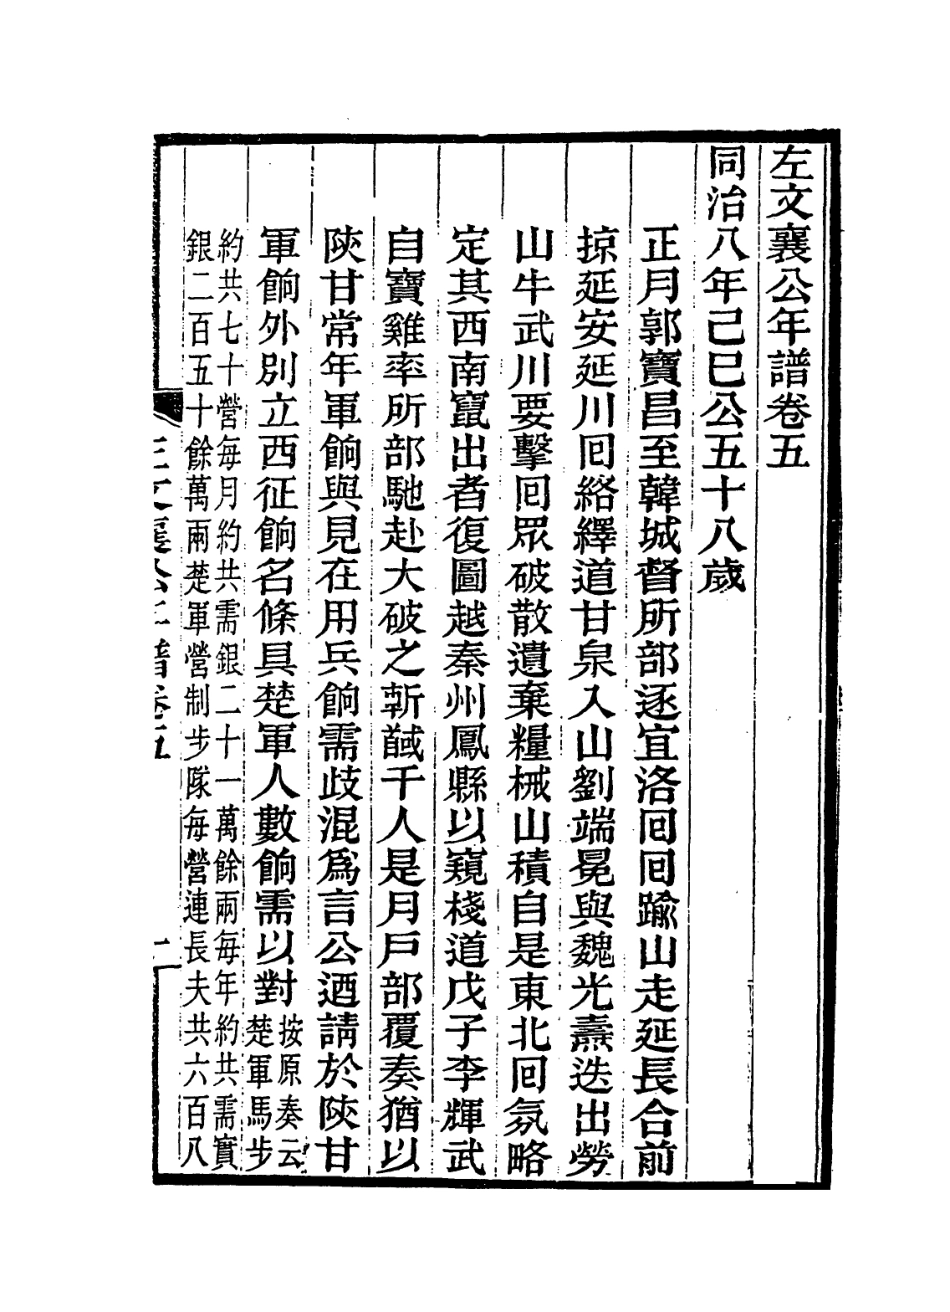 左文襄公年譜卷五
同治八年己巳公五十八歲
正月郭寶昌至韓城督所部逐宜洛囘囘踰山走延長合前
掠延安延川囘絡繹道甘泉入山劉端冕與魏光燾迭出勞
山牛武川要擊囘眾破散遺棄糧械山積自是東北囘氛略
定其西南竄出者復圖越秦州鳳縣以窺棧道戊子李輝武
自寶雞率所部馳赴大破之斬馘千人是月戶部覆奏猶以
陝甘常年軍餉與見在用兵餉需歧混爲言公迺請於陝甘
軍餉外別立西征餉名條具楚軍人數餉需以對按原奏云
楚軍馬步
約共七十營每月約共需銀二十一萬餘兩每年約共需實
銀二百五十餘萬兩楚軍營制步隊每營連長夫共六百八
文襄公年譜卷五
一